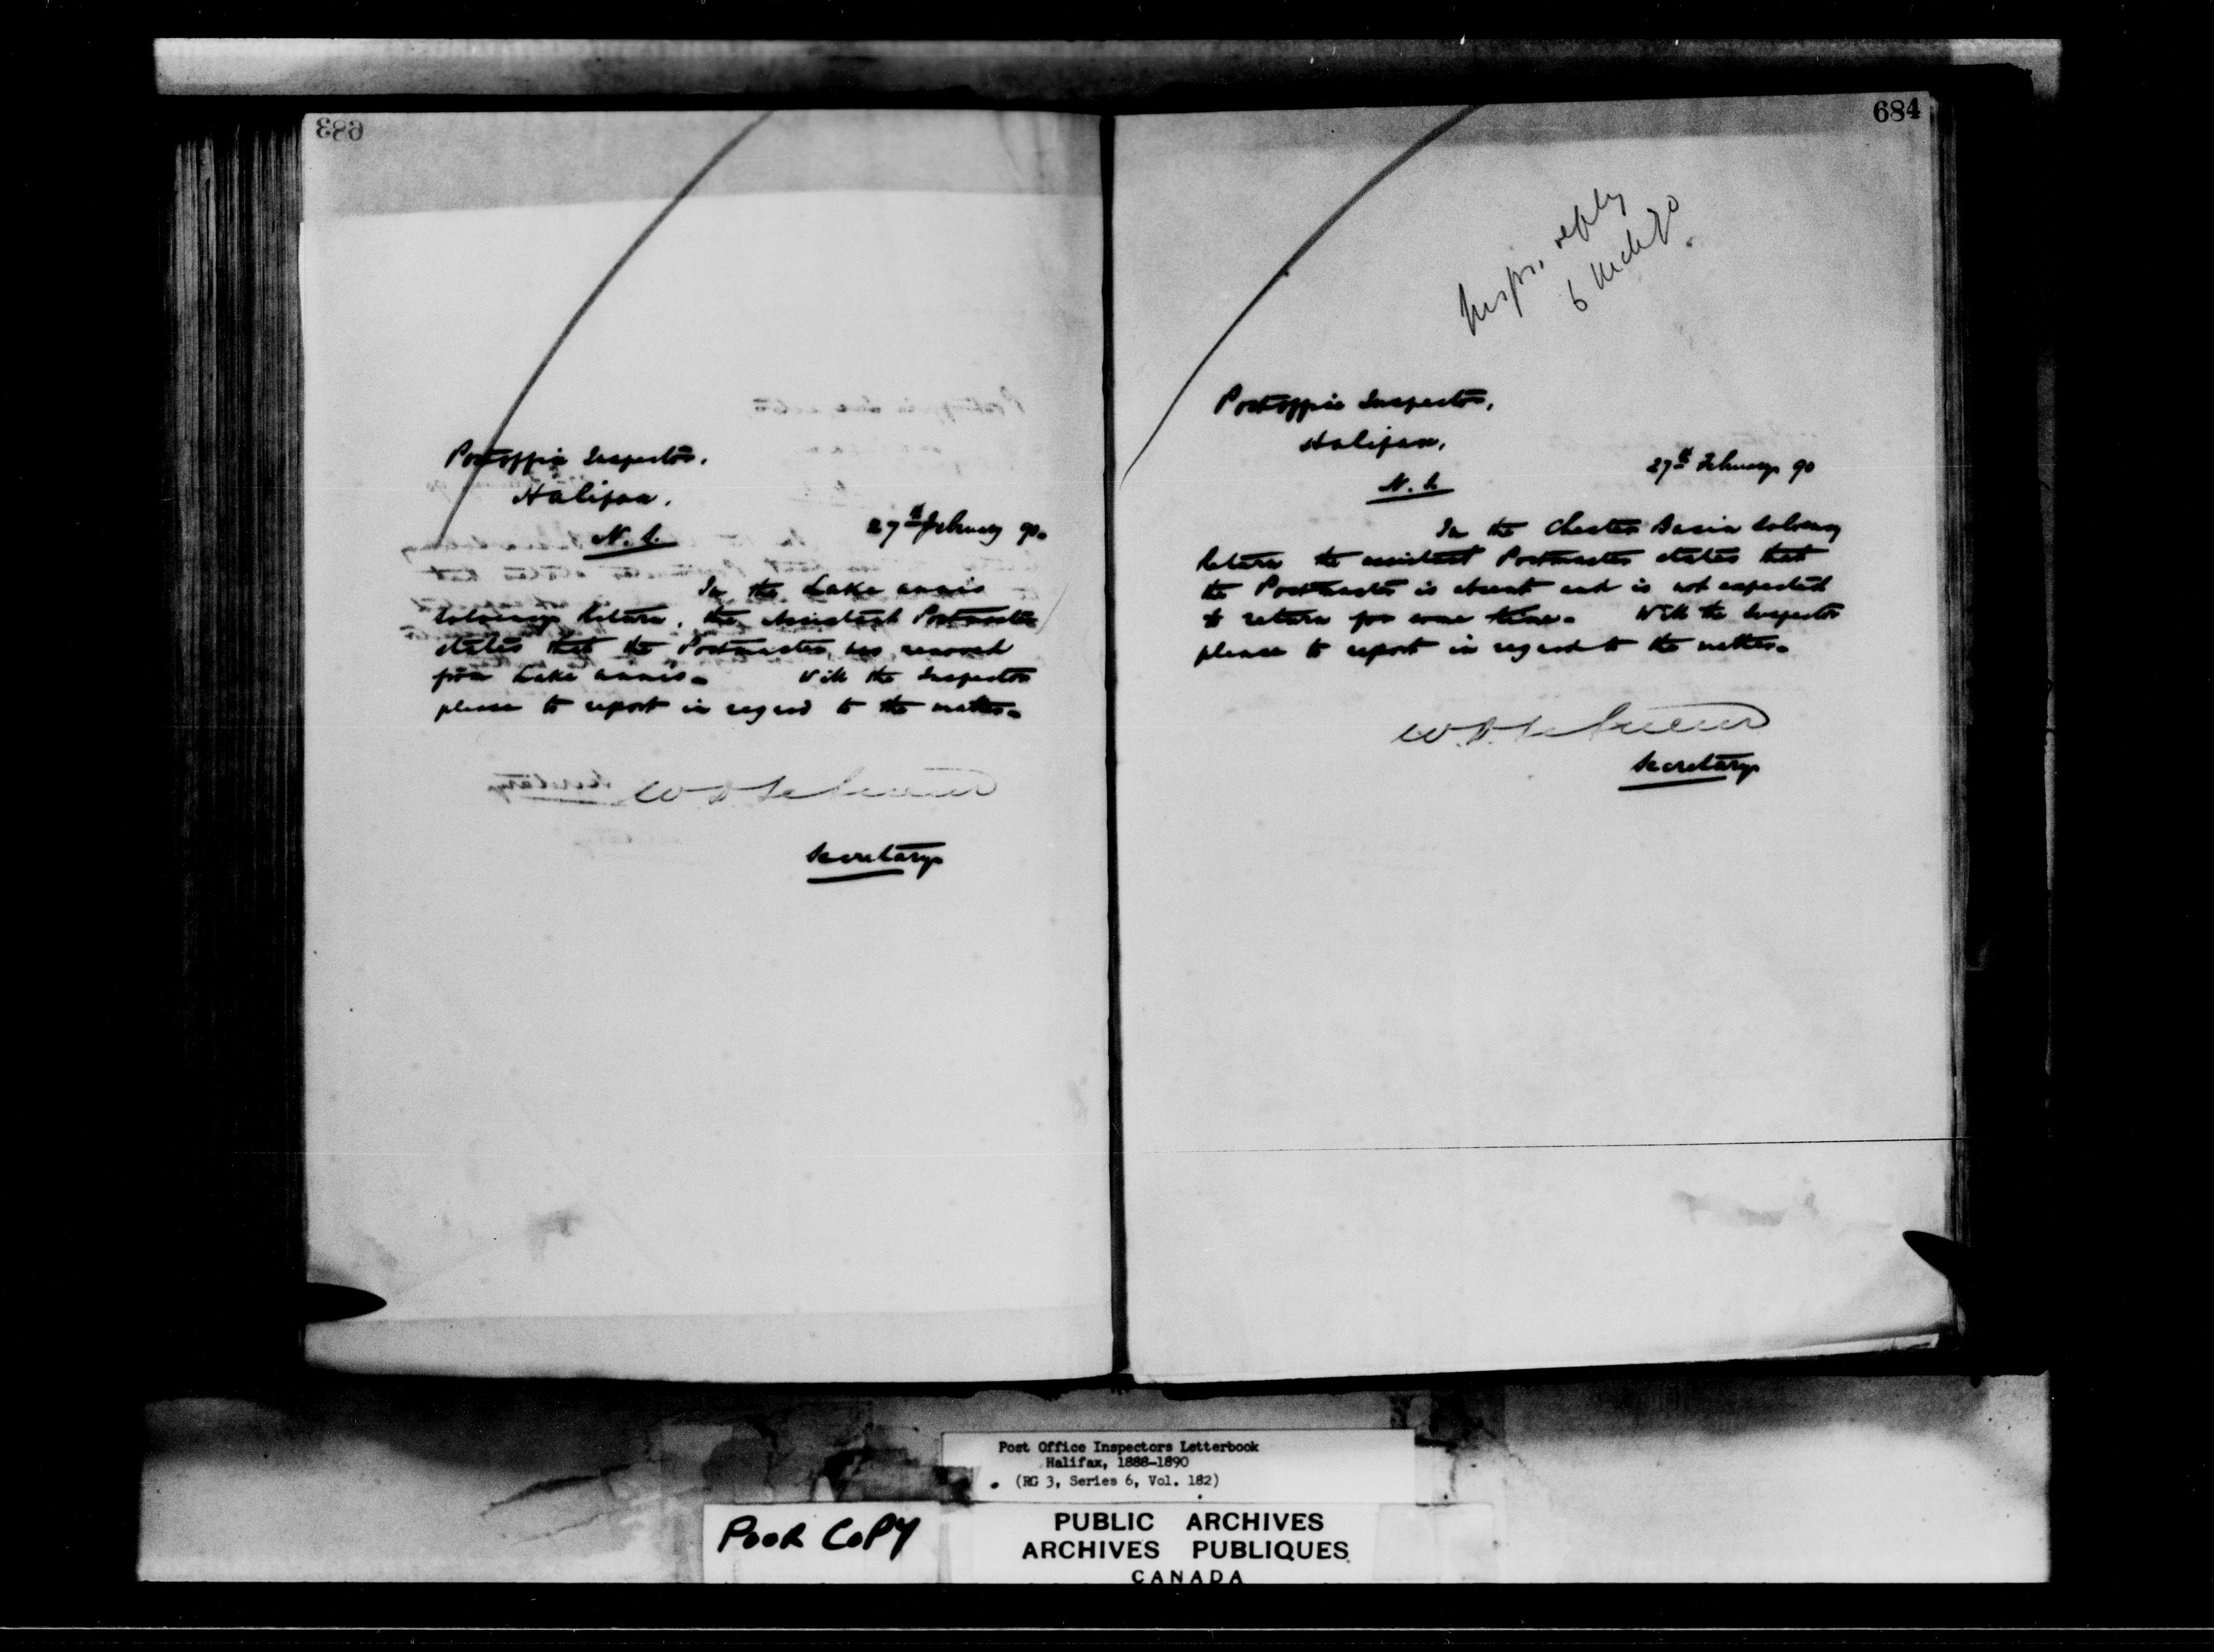 683
Postoffice Inspector.
Halifax.
N. S.
27th February 90.
In the Lake Annis
Solvency Return, the Assistant Postmaster
states that the Postmaster has removed
from Lake Annis. Will the Inspector
please to report in regard to the matter.
W D LeSueur
Secretary
684
Inspr. reply
6 Mch 90
Postoffice Inspector,
Halifax,
N. S.
27th February 90
In the Chester Basin Solvency
Return the assistant Postmaster states that
the Postmaster is absent and is not expected
to return for some time. Will the Inspector
please to report in regard to the matter.
W. D. LeSueur
Secretary
Post Office Inspectors Letterbook
Halifax, 1888-1890
(RG 3, Series 6, Vol. 182)
POOR COPY
PUBLIC ARCHIVES
ARCHIVES PUBLIQUES
CANADA